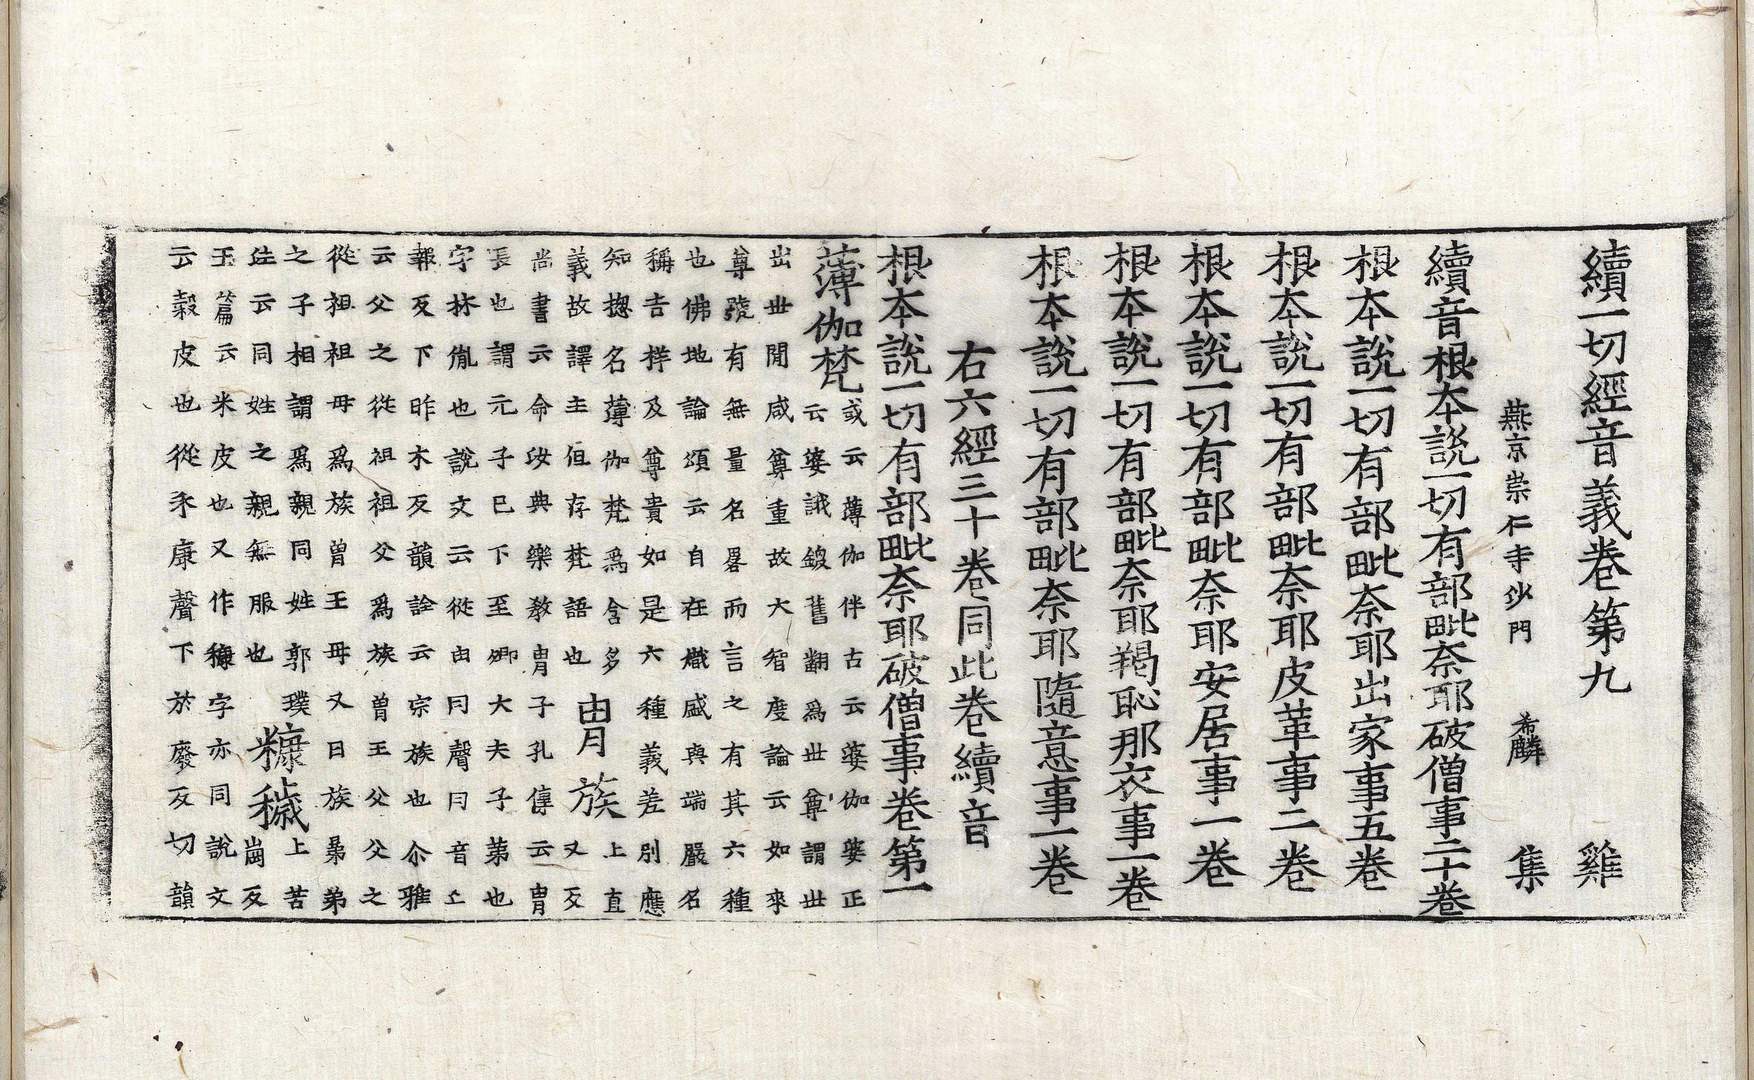 續一切經音義卷第九 雞
燕京崇仁寺沙門 希麟 集
續音根本說一切有部毗奈耶破僧事二十卷
根本說一切有部毗奈耶出家事五卷
根本說一切有部毗奈耶皮革事二卷
根本說一切有部毗奈耶安居事一卷
根本說一切有部毗奈耶羯恥那衣事一卷
根本說一切有部毗奈耶隨意事一卷
右六經三十卷同此卷續音
根本說一切有部毗奈耶破僧事卷第一
薄伽梵 或云薄伽伴古云婆伽婆正
云婆誐鍐舊翻爲世尊謂世
出世間咸尊重故大智度論云如來
尊號有無量名畧而言之有其六種
也佛地論頌云自在熾盛與端嚴名
稱吉祥及尊貴如是六種義差別應
知揔名薄伽梵爲含多
義故譯主但存梵語也
胄族 上直
又反
尚書云命汝典樂教胄子孔傳云胄
長也謂元子已下至卿大夫子弟也
字林胤也說文云從由冃聲冃音亡
報反下昨木反韻詮云宗族也尒雅
云父之從祖祖父爲族曾王父父之
從祖祖母爲族曾王母又曰族晜弟
之子相謂爲親同姓郭璞
注云同姓之親無服也
糠穢 上苦
崗反
玉篇云米皮也又作穅字亦同說文
云穀皮也從禾康聲下於廢反切韻